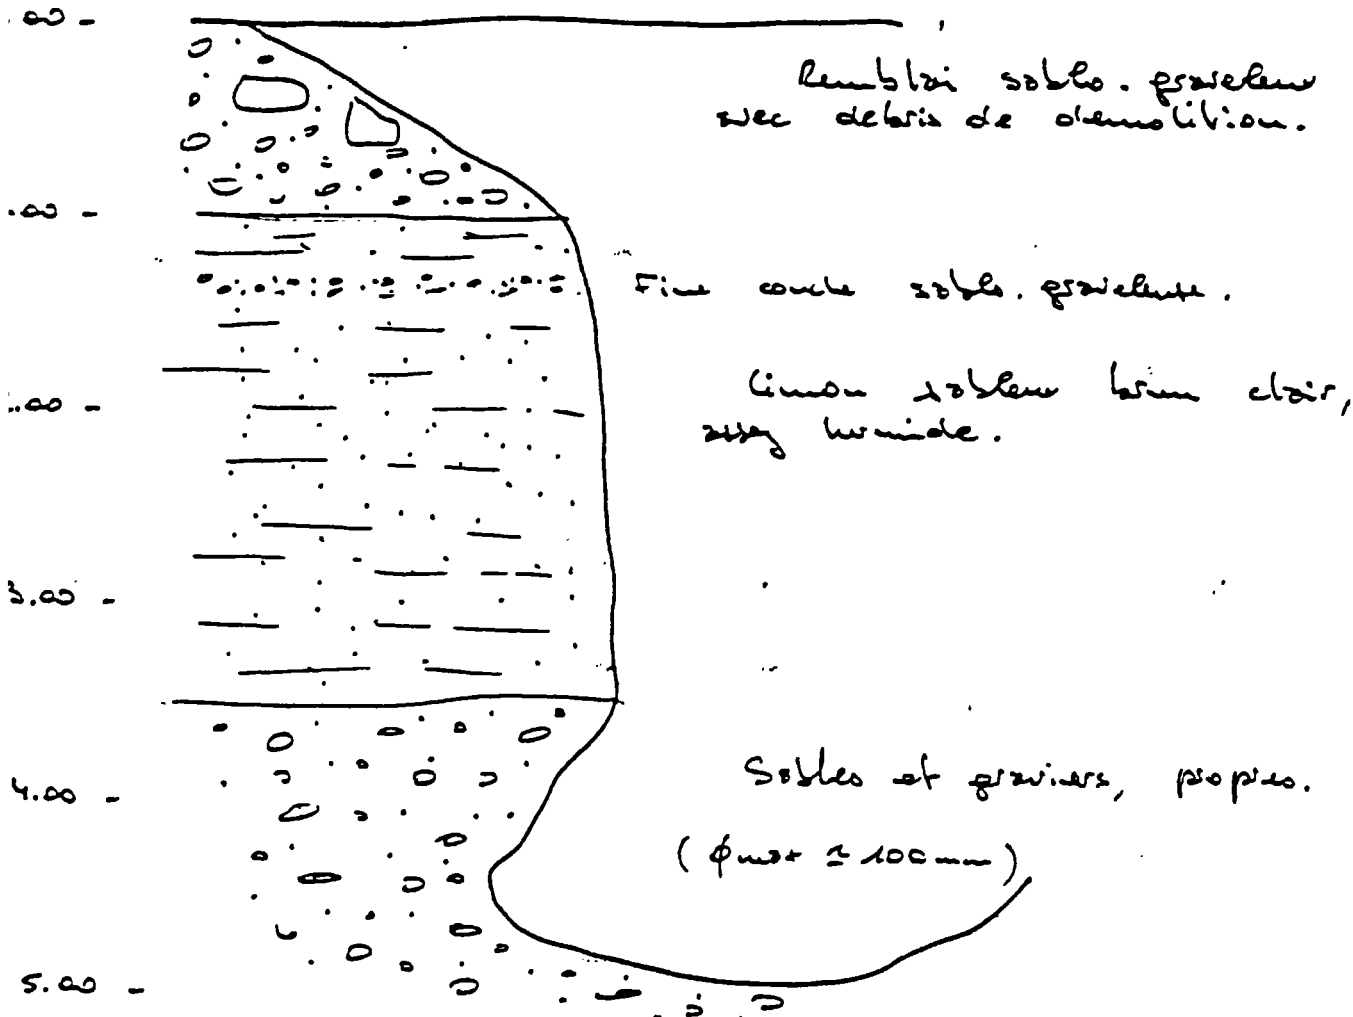 .00 -
Remblai sablo. graveleux
avec debris de demolition.
.00 -
Fine couche sablo. graveleuse.
.00 -
Limon sableux brun clair,
assez humide.
3.00 -
4.00 -
Sables et graviers, propres.
(ϕmax ≃ 100mm)
5.00 -